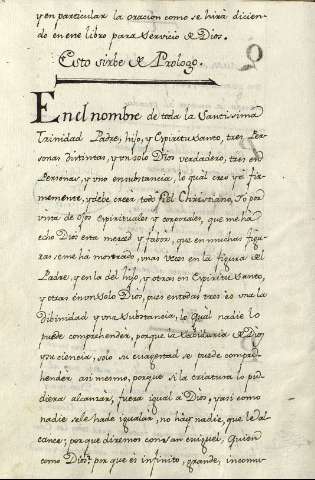 y en particular la oracion como se hirá dicien-
do en ene libro para servicio de Dios.
Esto sirbe de Prologo.
En el nombre de toda la Santissima
Trinidad Padre, hijo, y Espiritu santo, tres Per-
sonas distintas, y un solo Dios verdadero, tres en
Personas, y uno en substancia, lo qual creo yo fir-
memente, y debe creer todo fiel Christiano, Yo por
vista de ojos espirituales y corporales, que me ha
echo Dios esta merced y fabor, que en muchas figu-
ras se me ha mostrado, unas veces en la figura de
Padre, y en la del hijo, y otras en Espiritu santo,
y otras en un solo Dios, pues en todas tres es una la
Dibinidad y una substancia, lo qual nadie lo
puede comprehender, porque la sabiduria de Dios
y su ciencia, solo su magestad se puede compre-
hender asi mesmo, porque si la criatura lo pu-
diera alcanzar, fuera igual a Dios, y asi como
nadie se le ha de igualar, no hay nadie, que le al-
cance; porque diremos con san miguel, Quien
como Dios? por que es infinito, grande, incomu-